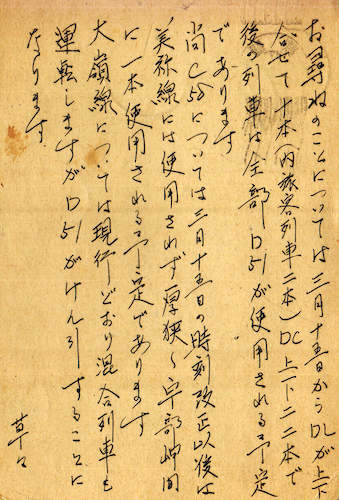 お尋ねのことについては三月十五日からDLが上下
合せて十本(内旅客列車二本)DC上下二二本で
後の列車は全部D51が使用される予定
であります
尚C58については三月十五日の時刻改正以後は
美祢線には使用されず厚狭〜宇部岬間
に一本使用される予定であります
大嶺線については現行どおり混合列車も
運転しますがD51がけん引することに
なります
草々